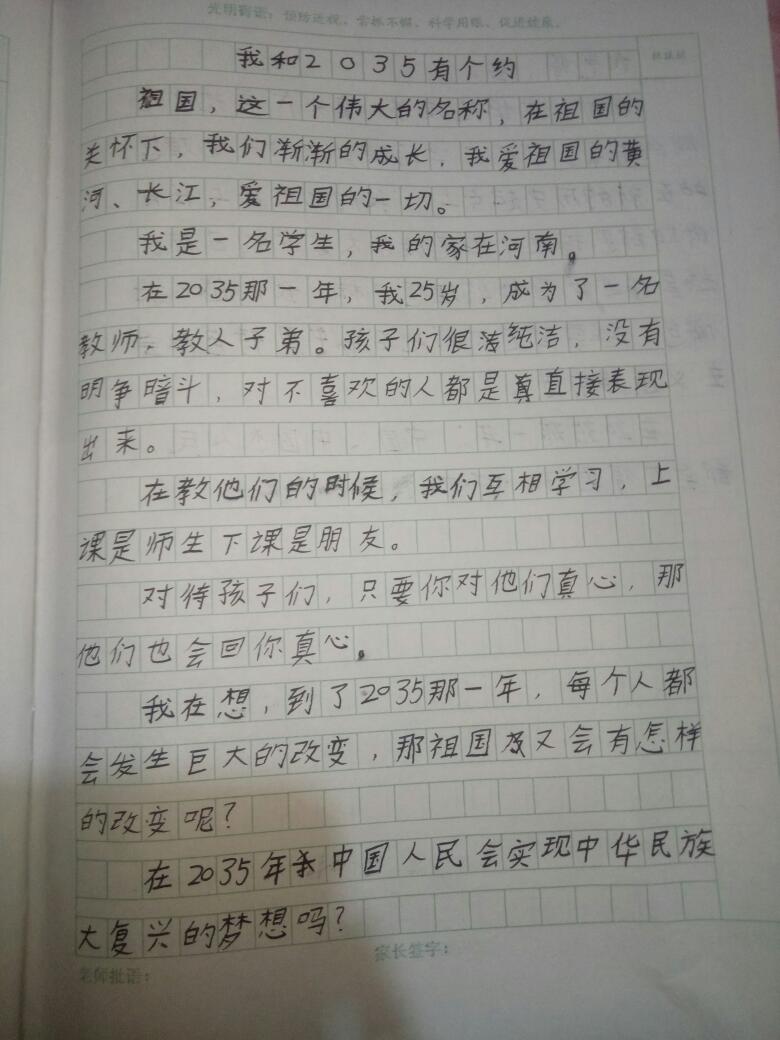 光明寄语：预防近视、常抓不懈、科学用眼、促进健康。
我和2035有个约
祖国，这一个伟大的名称，在祖国的
关怀下，我们渐渐的成长，我爱祖国的黄
河、长江，爱祖国的一切。
我是一名学生，我的家在河南。
在2035那一年，我25岁，成为了一名
教师，教人子弟。孩子们很纯洁，没有
明争暗斗，对不喜欢的人都是真直接表现
出来。
在教他们的时候，我们互相学习，上
课是师生下课是朋友。
对待孩子们，只要你对他们真心，那
他们也会回你真心。
我在想，到了2035那一年，每个人都
会发生巨大的改变，那祖国又会有怎样
的改变呢？
在2035年我中国人民会实现中华民族
大复兴的梦想吗？
家长签字：
老师批语：